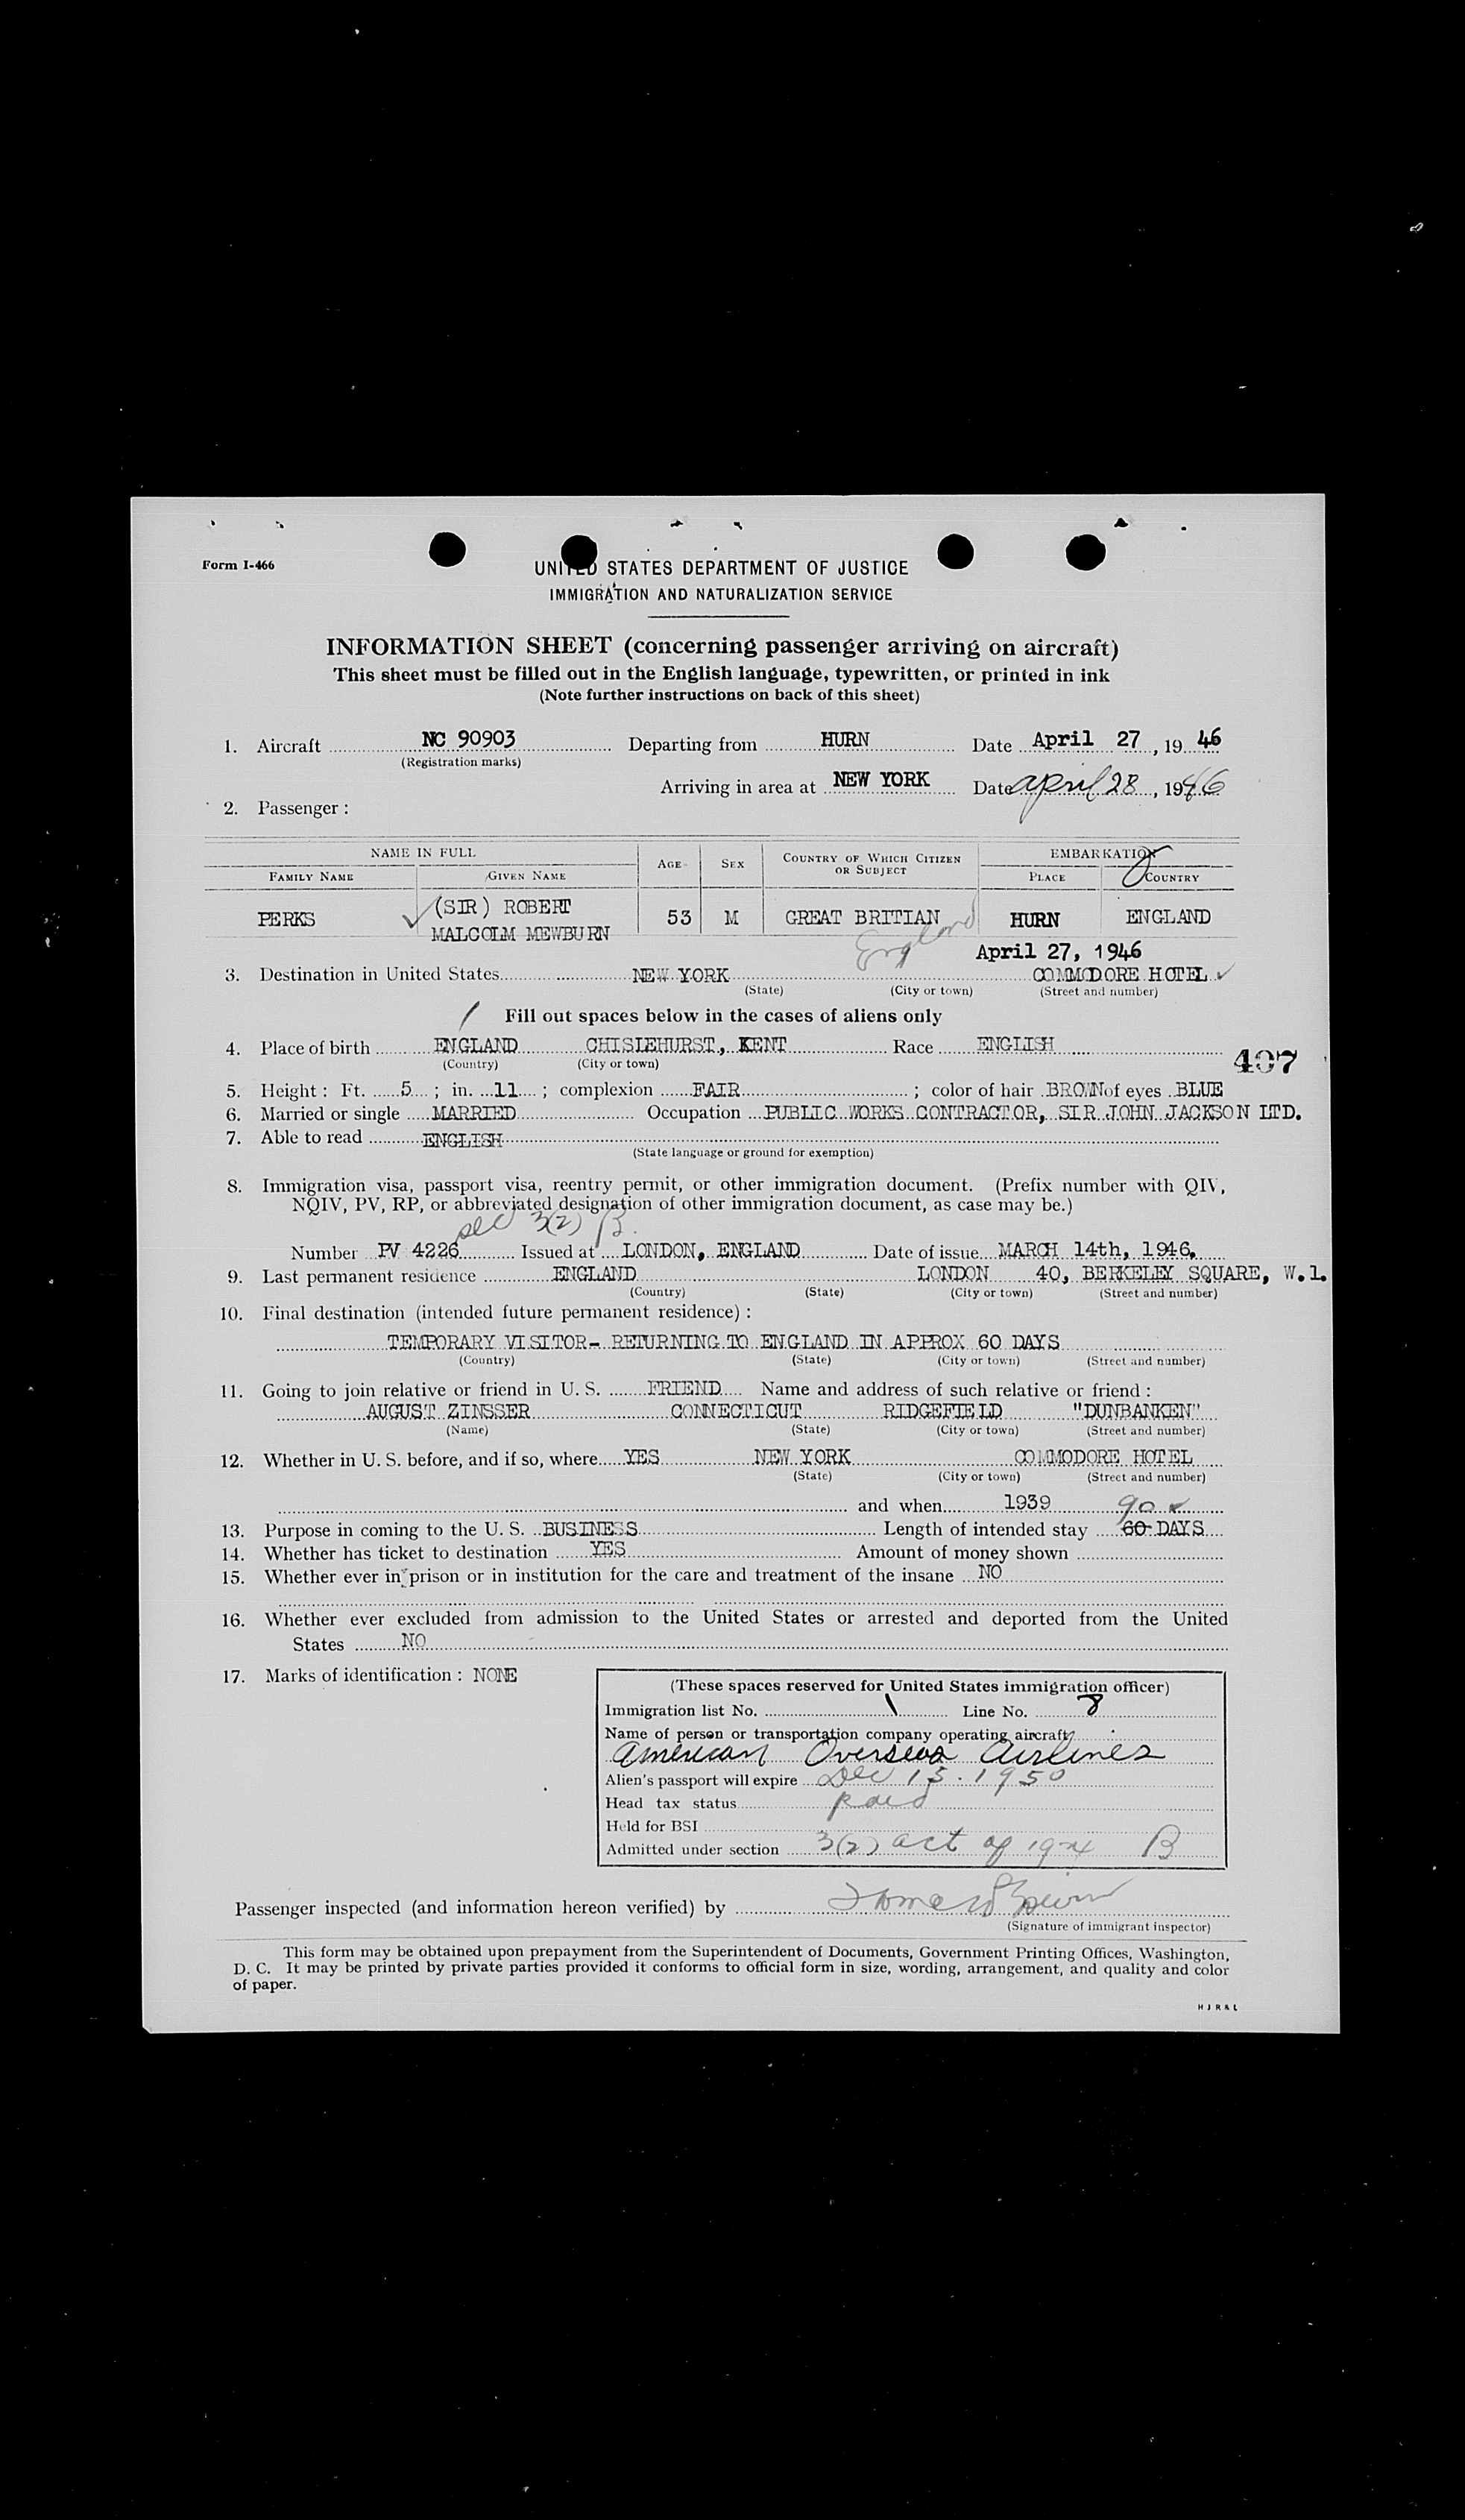 Form I-466
UNITED STATES DEPARTMENT OF JUSTICE
IMMIGRATION AND NATURALIZATION SERVICE
INFORMATION SHEET (concerning passenger arriving on aircraft)
This sheet must be filled out in the English language, typewritten, or printed in ink
(Note further instructions on back of this sheet)
1. Aircraft NC 90903 Departing from HURN Date April 27, 1946
(Registration marks)
Arriving in area at NEW YORK Date april 28, 1946
2. Passenger:
NAME IN FULL AGE SEX COUNTRY OF WHICH CITIZEN OR SUBJECT EMBARKATION
FAMILY NAME GIVEN NAME PLACE COUNTRY
PERKS (SIR) ROBERT MALCOLM MEWBURN 53 M GREAT BRITIAN HURN ENGLAND
England April 27, 1946
3. Destination in United States NEW YORK COMMODORE HOTEL
(State) (City or town) (Street and number)
Fill out spaces below in the cases of aliens only
4. Place of birth ENGLAND CHISLEHURST, KENT Race ENGLISH
(Country) (City or town)
407
5. Height: Ft. 5; in. 11; complexion FAIR; color of hair BROWN of eyes BLUE
6. Married or single MARRIED Occupation PUBLIC WORKS CONTRACTOR, SIR JOHN JACKSON LTD.
7. Able to read ENGLISH
(State language or ground for exemption)
8. Immigration visa, passport visa, reentry permit, or other immigration document. (Prefix number with QIV,
NQIV, PV, RP, or abbreviated designation of other immigration document, as case may be.)
sec 3(2) B.
Number PV 4226 Issued at LONDON, ENGLAND Date of issue MARCH 14th, 1946.
9. Last permanent residence ENGLAND LONDON 40, BERKELEY SQUARE, W.1.
(Country) (State) (City or town) (Street and number)
10. Final destination (intended future permanent residence):
TEMPORARY VISITOR- RETURNING TO ENGLAND IN APPROX 60 DAYS
(Country) (State) (City or town) (Street and number)
11. Going to join relative or friend in U. S. FRIEND Name and address of such relative or friend:
AUGUST ZINSSER CONNECTICUT RIDGEFIELD "DUNBANKEN"
(Name) (State) (City or town) (Street and number)
12. Whether in U. S. before, and if so, where YES NEW YORK COMMODORE HOTEL
(State) (City or town) (Street and number)
and when 1939 90
13. Purpose in coming to the U. S. BUSINESS Length of intended stay 60 DAYS
14. Whether has ticket to destination YES Amount of money shown
15. Whether ever in prison or in institution for the care and treatment of the insane NO
16. Whether ever excluded from admission to the United States or arrested and deported from the United
States NO
17. Marks of identification: NONE
(These spaces reserved for United States immigration officer)
Immigration list No. 1 Line No. 8
Name of person or transportation company operating aircraft
American Overseas Airlines
Alien's passport will expire Dec 15. 1950
Head tax status paid
Held for BSI
Admitted under section 3(2) act of 1924 B
Passenger inspected (and information hereon verified) by
(Signature of immigrant inspector)
This form may be obtained upon prepayment from the Superintendent of Documents, Government Printing Offices, Washington,
D. C. It may be printed by private parties provided it conforms to official form in size, wording, arrangement, and quality and color
of paper.
H J R & L